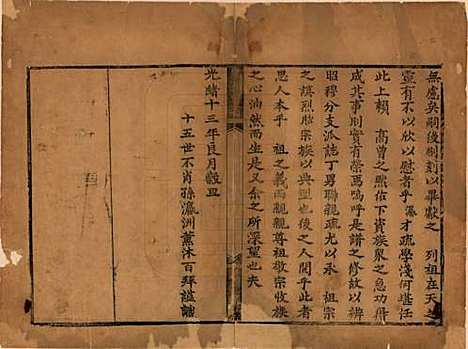 無慮矣嗣後剞刻以畢獻之 列祖在天之
靈有不以欣以慰者乎 瀛才疏學淺何堪任
此上賴 高曾之照佑下資族衆之
成其事則實有榮焉嗚呼是譜之修故以辨
昭穆分支派誌丁男聯親疏尤以承 祖宗
之演烈胎宗族以典型也後之人閱乎此者
思人本乎 祖之義而親親尊祖敬宗收族
之心油然而生是又余之所深望也夫
光緒十三年良月穀旦
十五世不肖孫瀛洲薰沐百拜謹識